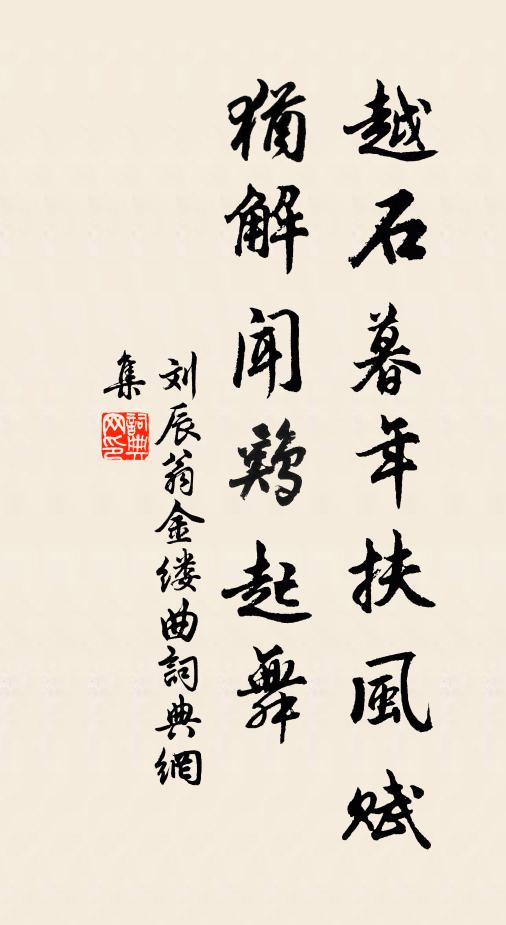 越石暮年扶風賦
猶解聞鷄起舞
刘辰翁金缕曲詞典網
集
詞典网印